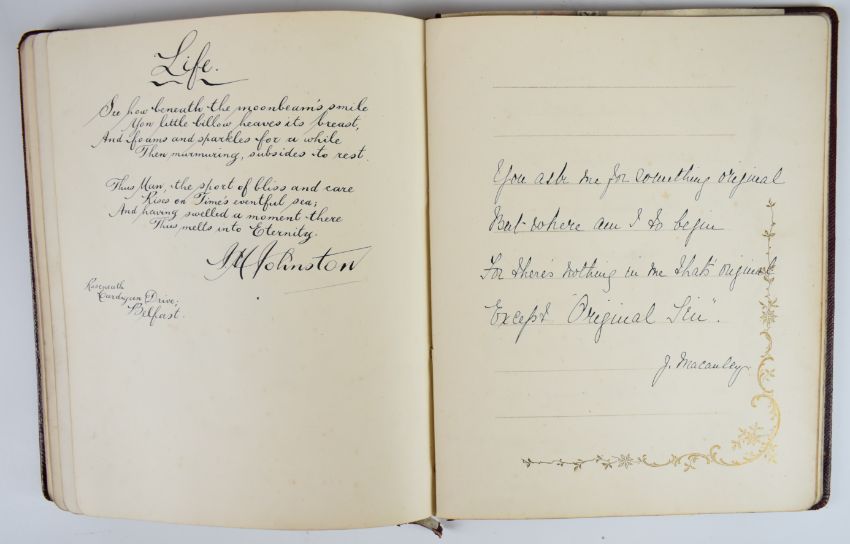 Life.
See how beneath the moonbeam's smile
Yon little billow heaves its breast,
And foams and sparkles for a while
Then murmuring, subsides to rest.
Thus Man, the sport of bliss and care
Rises on Time's eventful sea;
And having swelled a moment there
Thus melts into Eternity.
Johnston
Roseneath
Cardigan Drive;
Belfast.
You ask me for something original
But where am I to begin
For there's nothing in me that's original
Except "Original Sin".
J. Macauley.